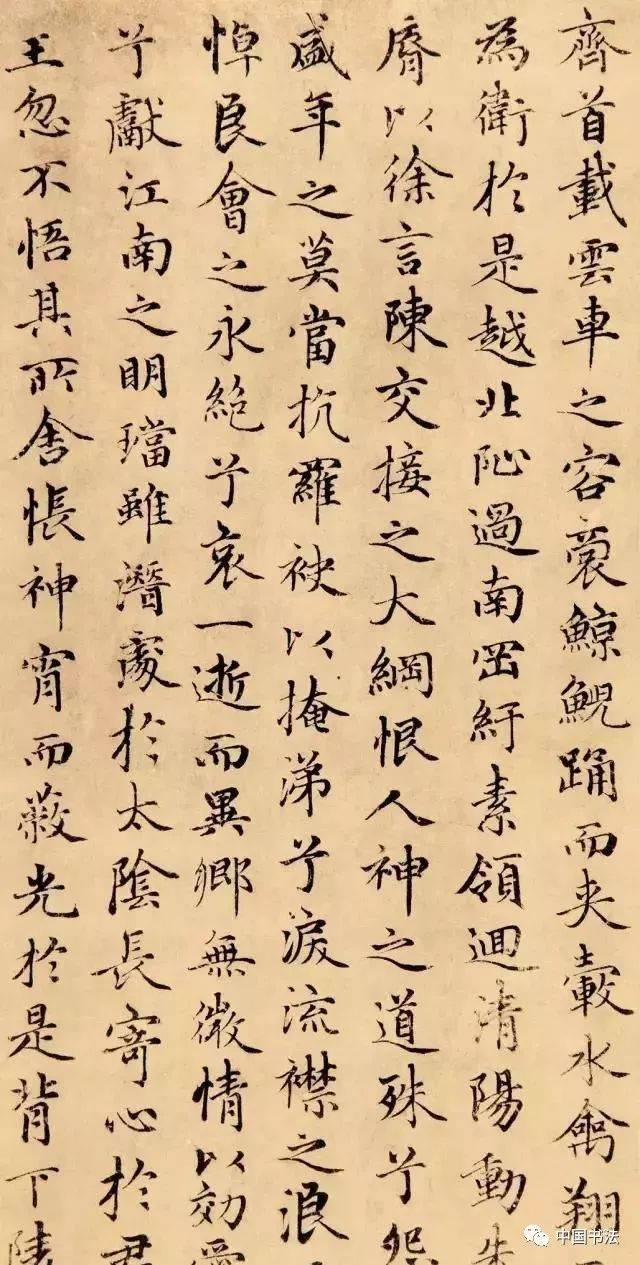 齊首載雲車之容裔鯨鯢踊而夾轂水禽翔
為衛於是越北沚過南岡紆素領迴清陽動
脣以徐言陳交接之大綱恨人神之道殊兮怨
盛年之莫當抗羅袂以掩涕兮淚流襟之浪
悼良會之永絶兮哀一逝而異鄉無微情以効愛
兮獻江南之明璫雖潛處於太陰長寄心於君
王忽不悟其所舍悵神宵而蔽光於是背下陵
中国书法